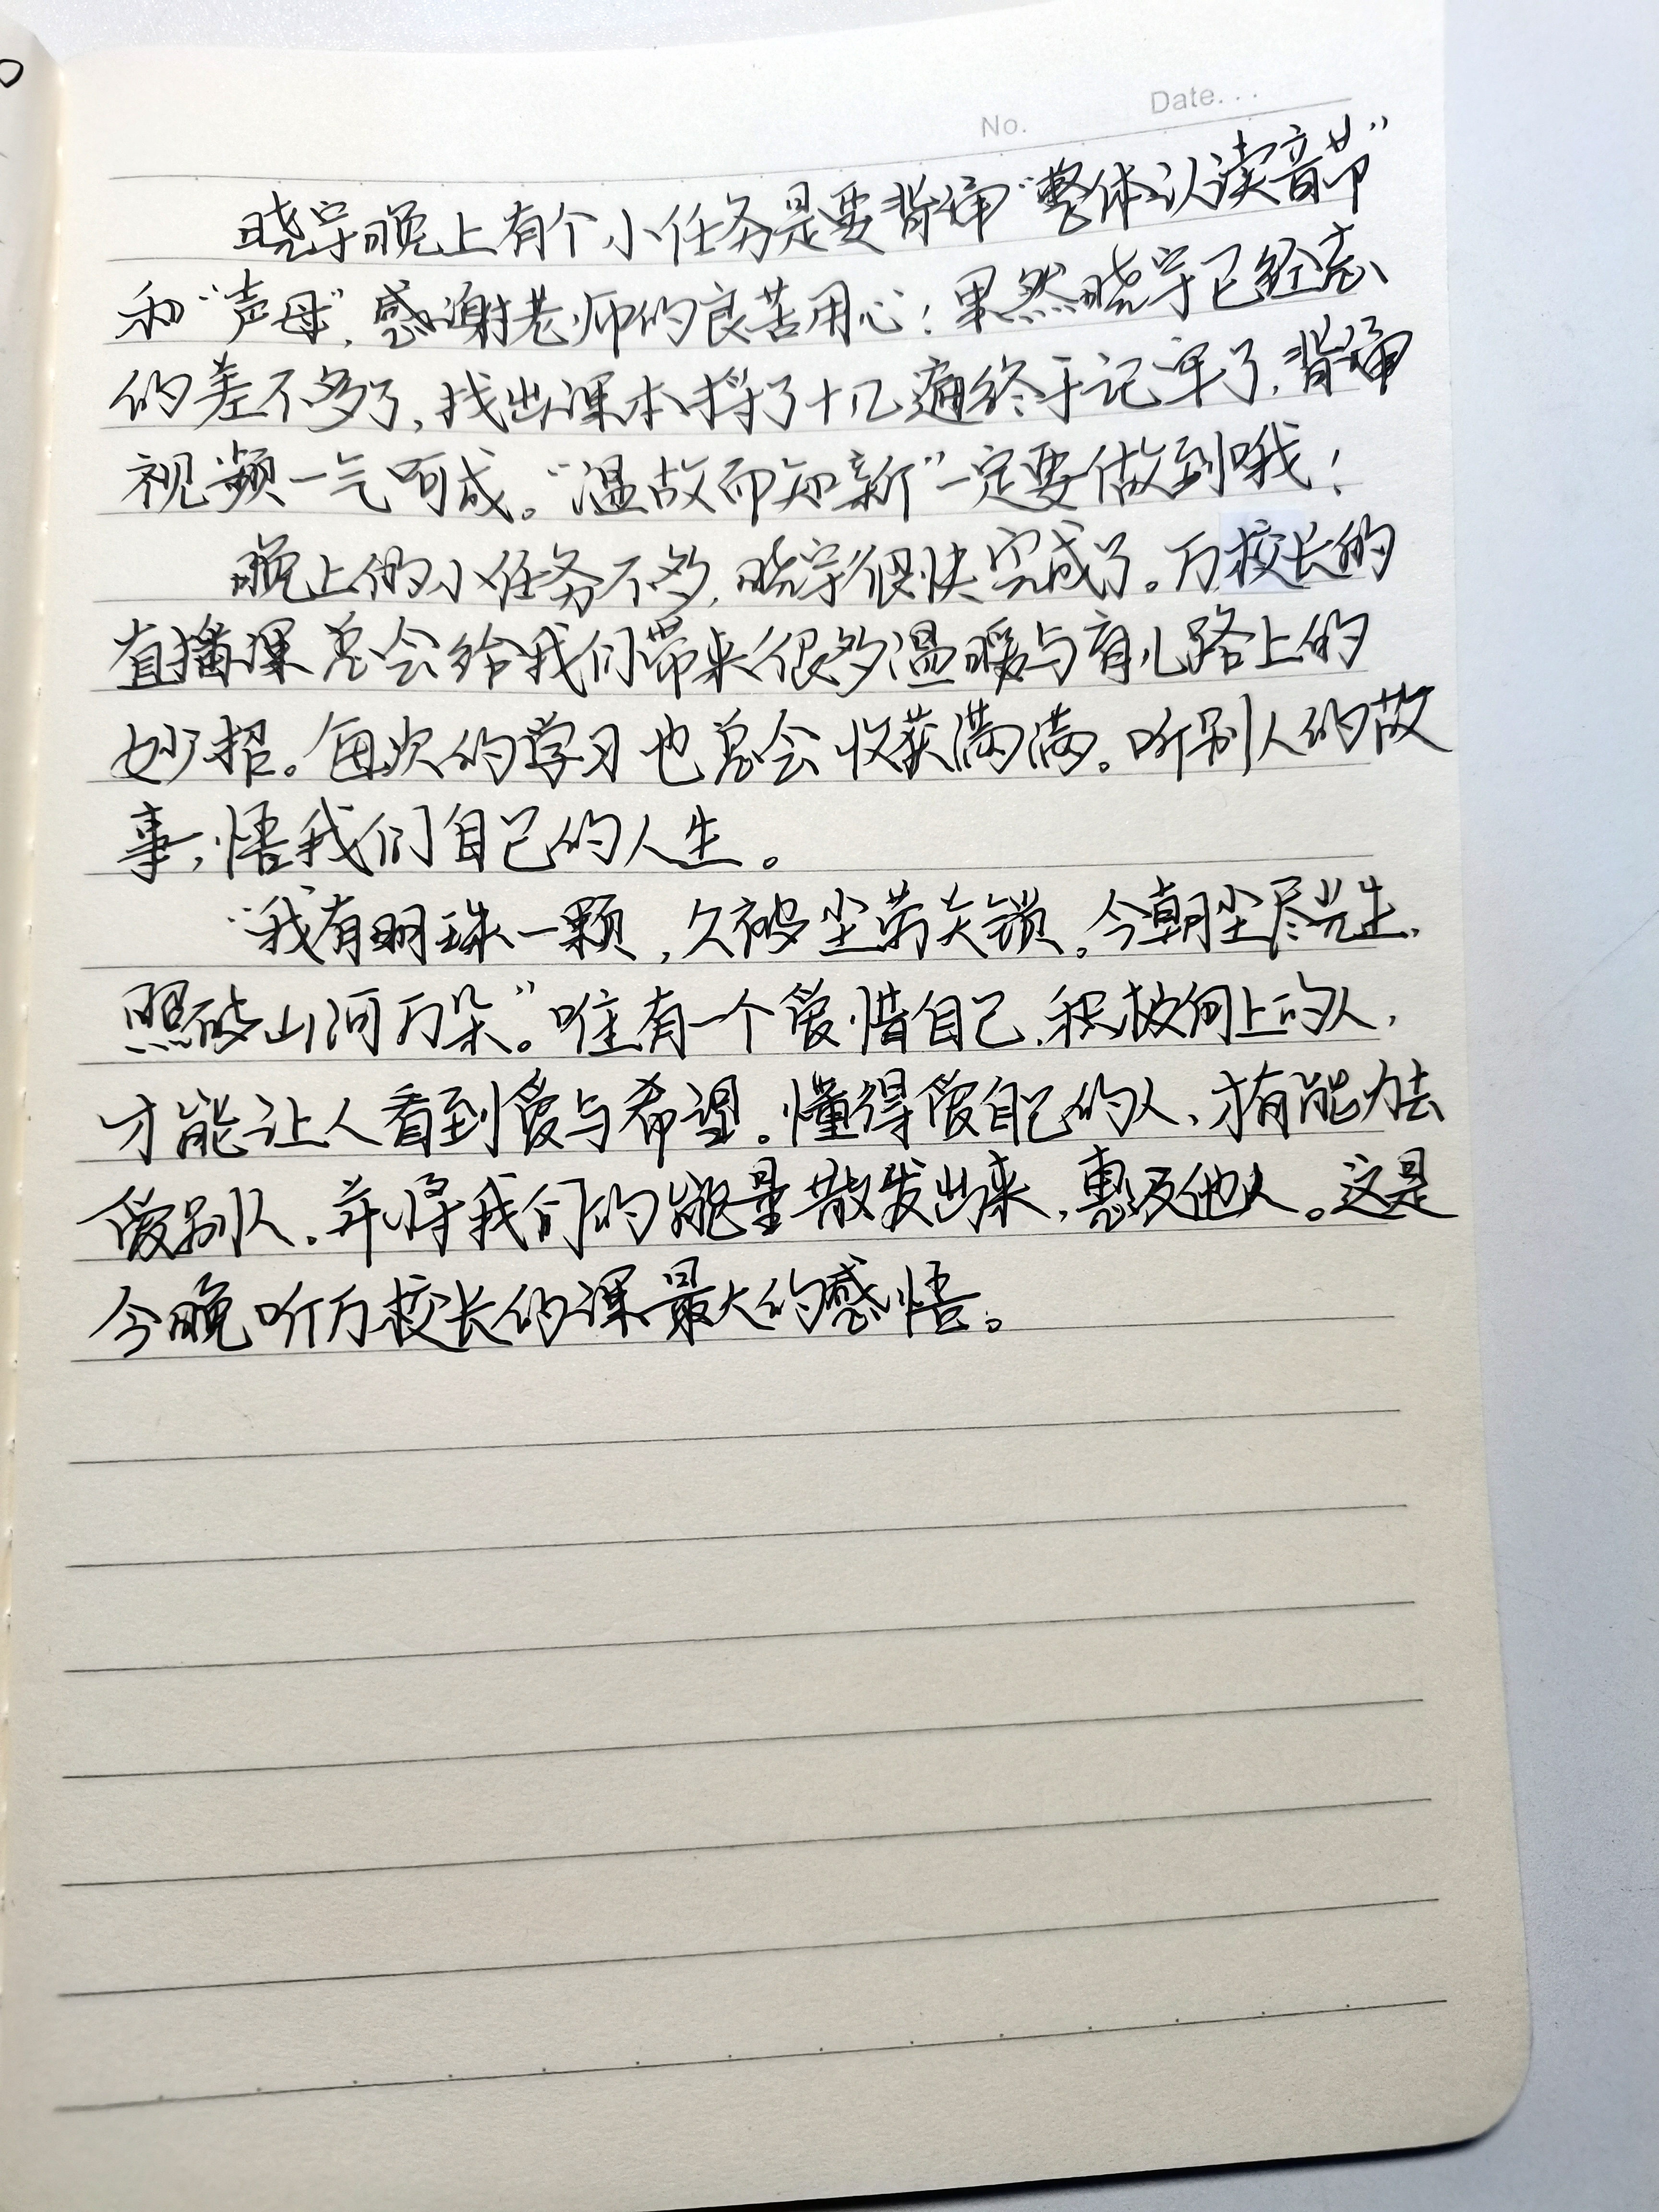 No. Date...
晓宇晚上有个小任务是要背诵“整体认读音节”
和“声母”,感谢老师的良苦用心!果然晓宇已经忘
的差不多了,找出课本捋了十几遍终于记牢了,背诵
视频一气呵成。“温故而知新”一定要做到哦!
晚上的小任务不多,晓宇很快完成了。万校长的
直播课总会给我们带来很多温暖与育儿路上的
妙招。每次的学习也总会收获满满。听别人的故
事,悟我们自己的人生。
“我有明珠一颗,久被尘劳关锁。今朝尘尽光生,
照破山河万朵。”唯有一个爱惜自己、积极向上的人,
才能让人看到爱与希望。懂得爱自己的人、才有能力去
爱别人。并将我们的能量散发出来,惠及他人。这是
今晚听万校长的课最大的感悟。